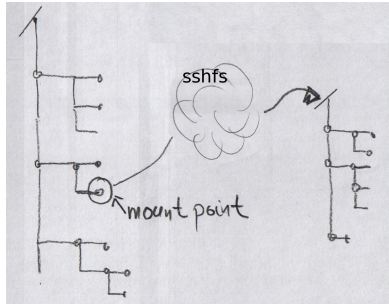 /
sshfs
/
mount point